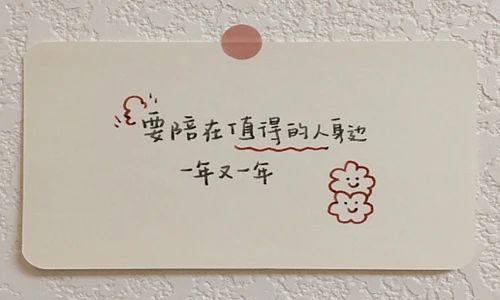 要陪在值得的人身边
一年又一年